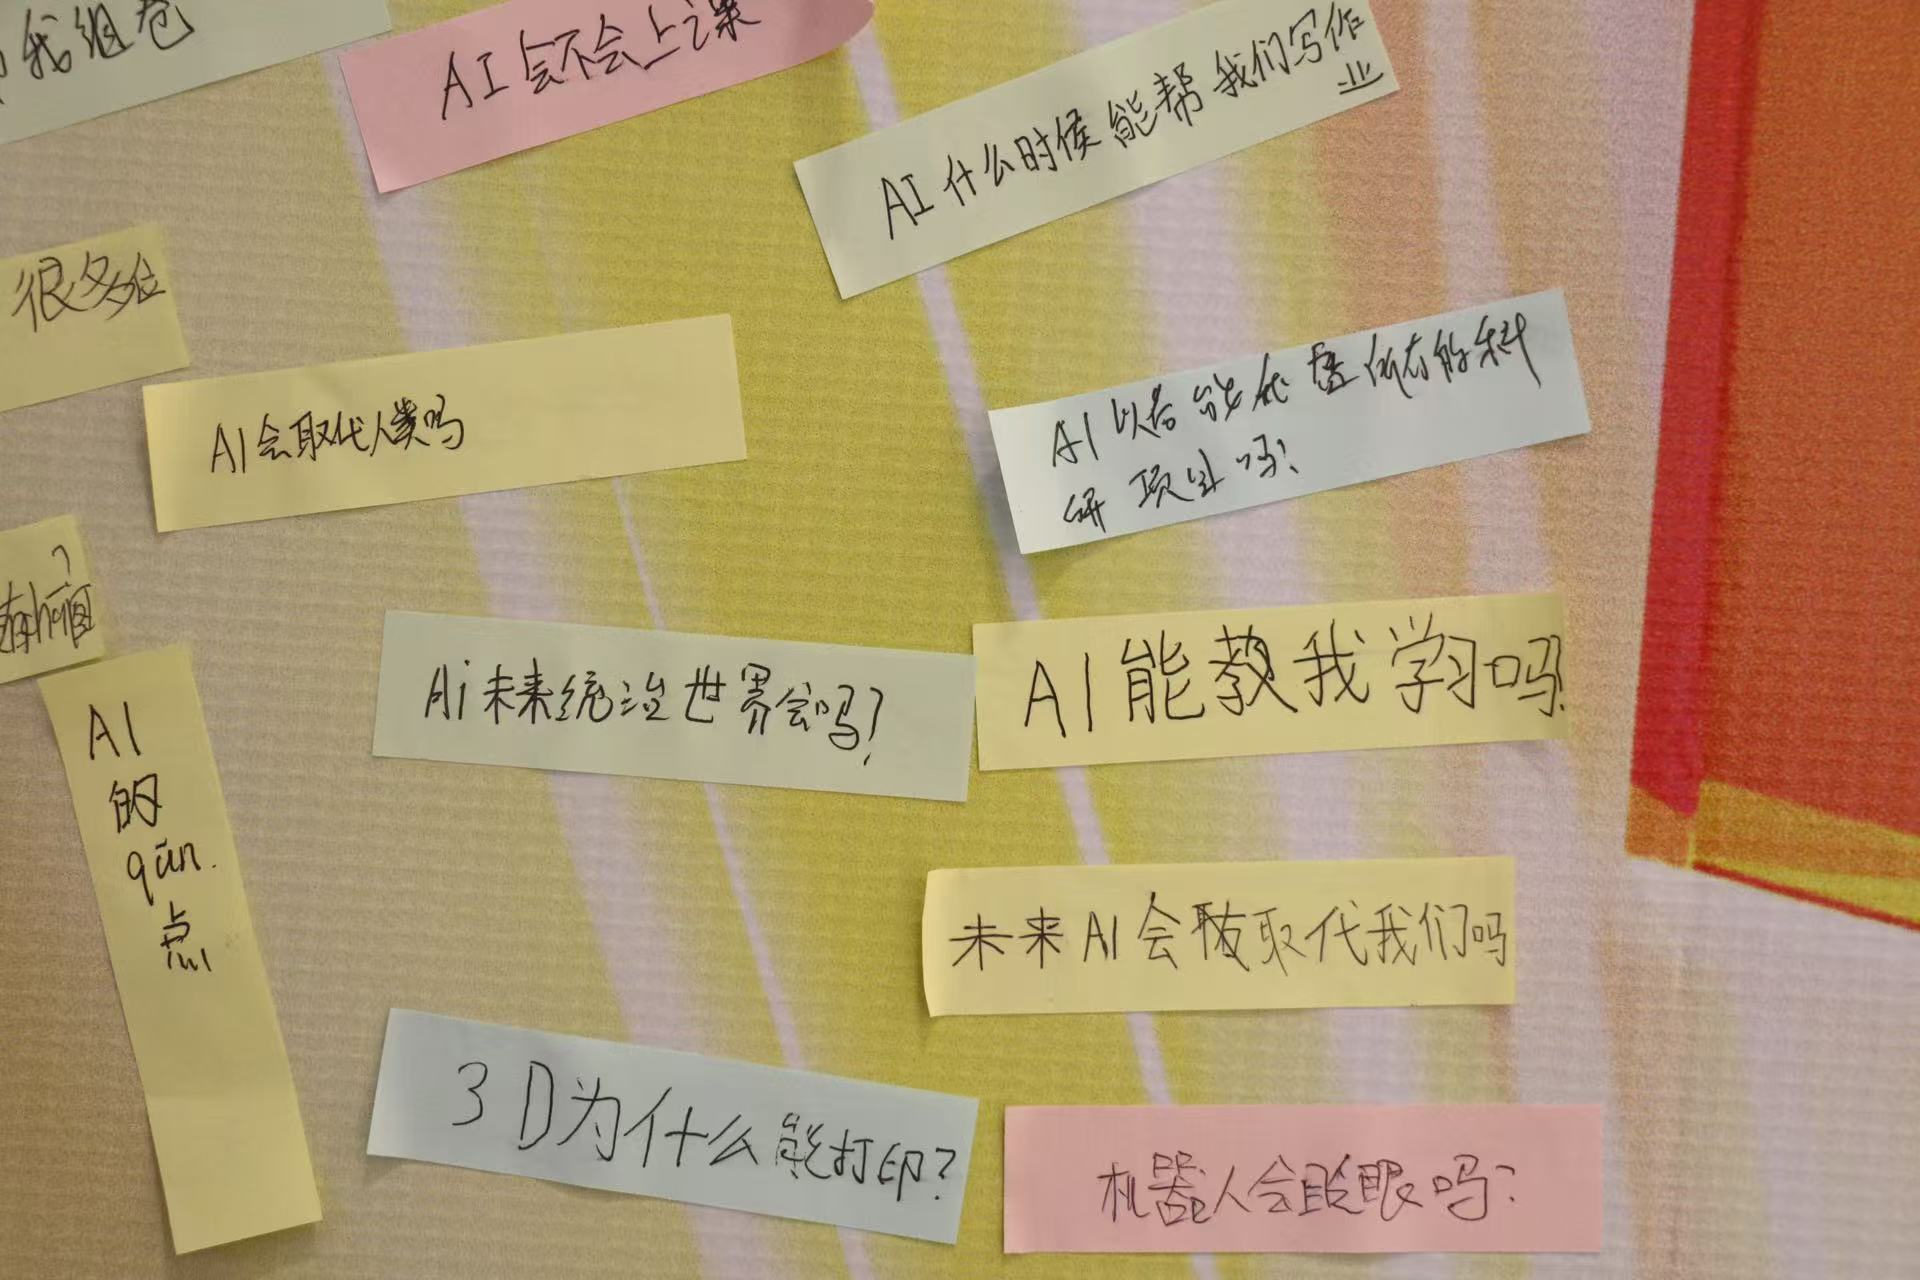 我组卷
AI会不会上课
AI什么时候能帮我们写作
业
很多位
AI会取代人类吗
AI以后能代 所有的科
研项目吗?
?
AI
的
qūn.
点
Ai未来统治世界会吗?
AI能教我学习吗?
未来AI会 取代我们吗
3D为什么能打印?
机器人会眨眼吗?